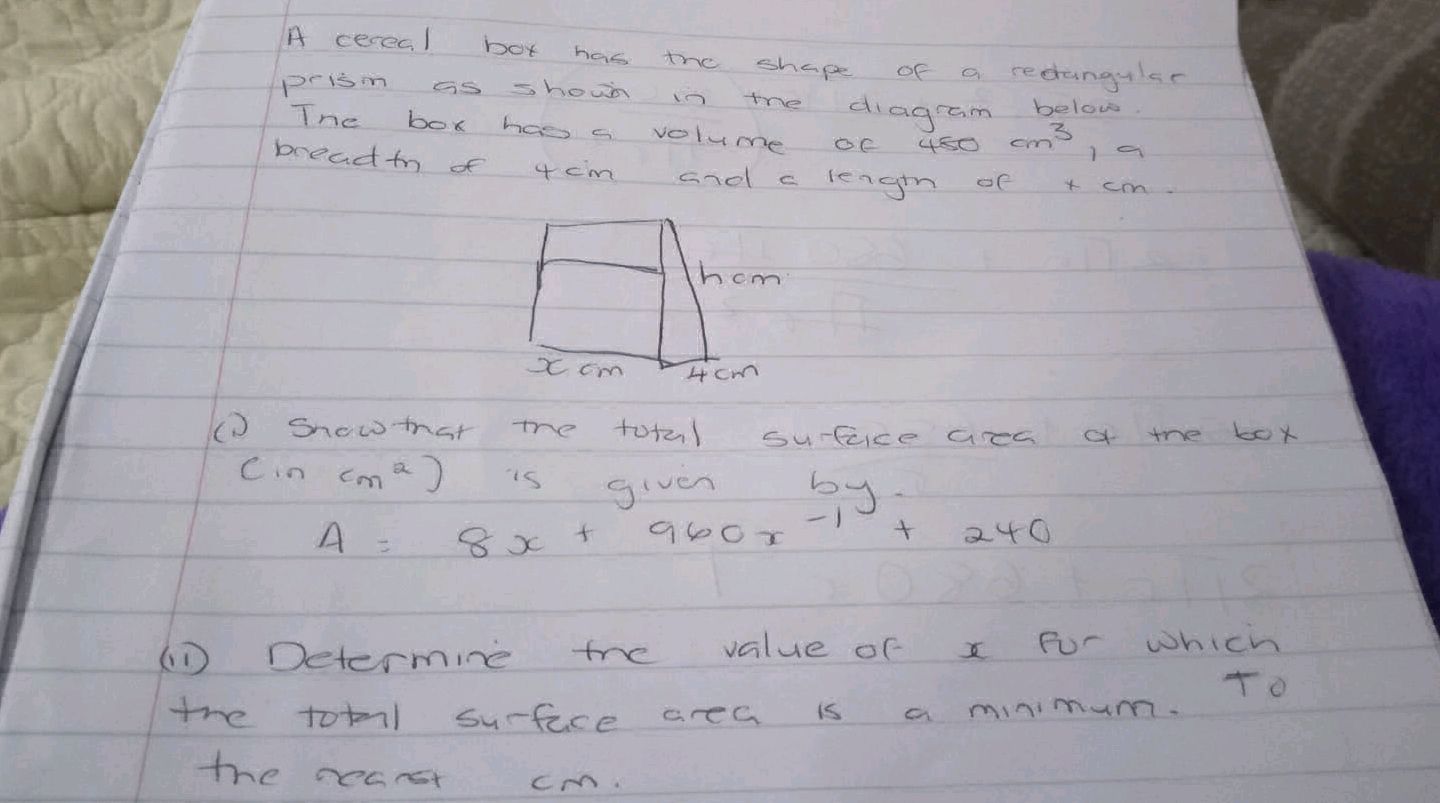 A cereal box has the shape of a rectangular
prism as shown in the diagram below.
The box has a volume of 480 cm³, a
breadth of 4cm and a length of x cm.
h cm
x cm 4cm
(i) Show that the total surface area of the box
(in cm²) is given by.
A = 8x + 960x⁻¹ + 240
(ii) Determine the value of x for which
the total surface area is a minimum. To
the nearst cm.